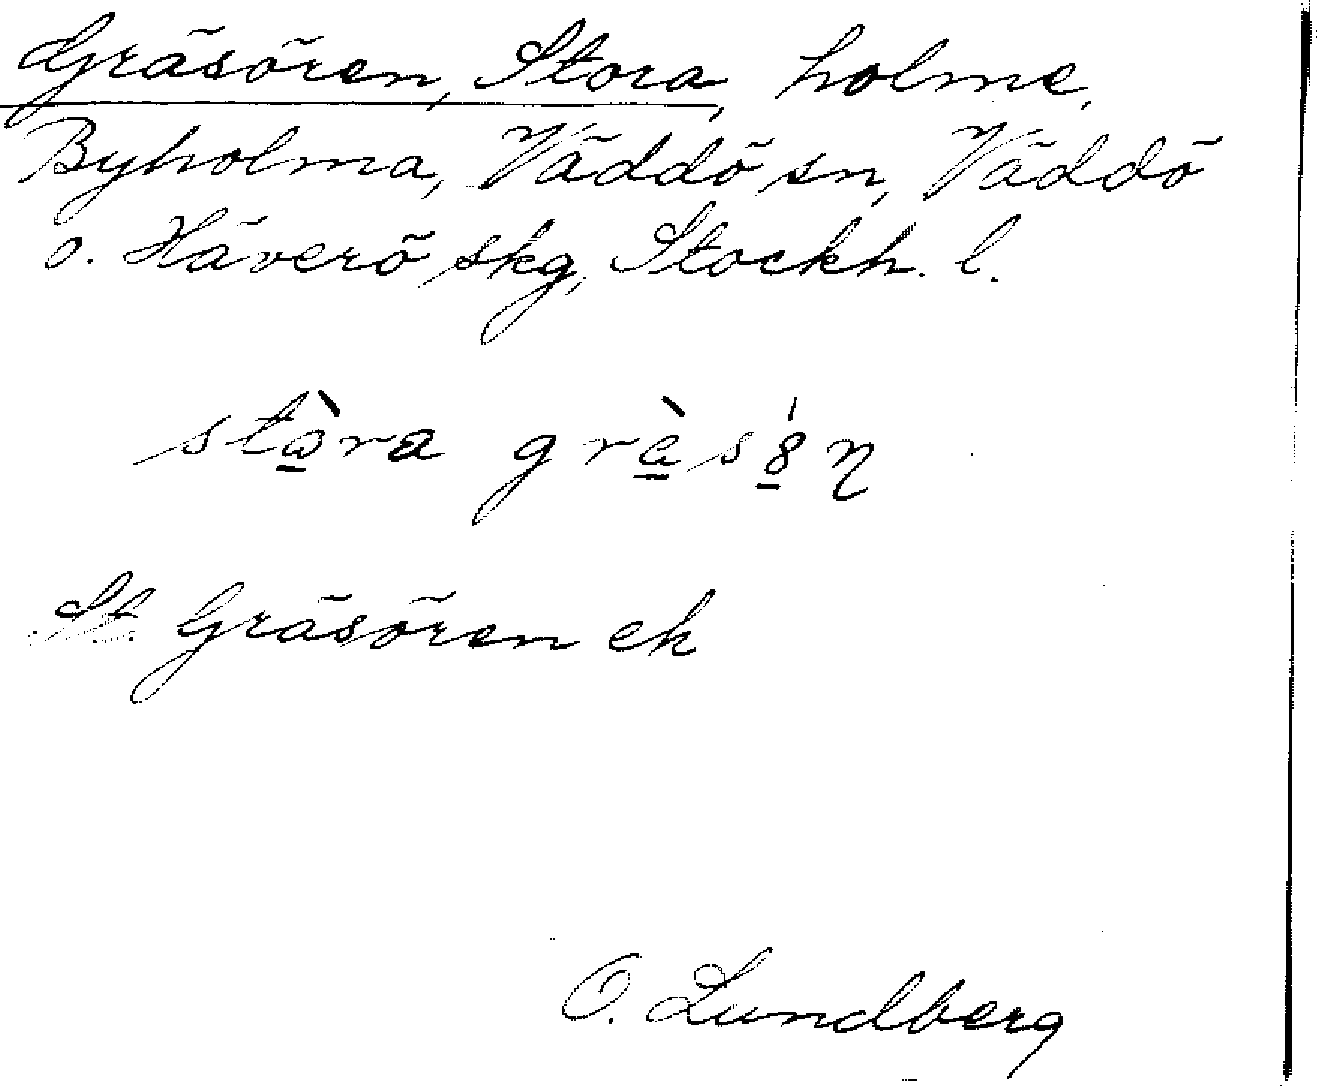 Gräsören, Stora, holme,
Byholma, Väddö sn, Väddö
o. Häverö skg, Stockh. l.
stora
St. Gräsören ek
O. Lundberg